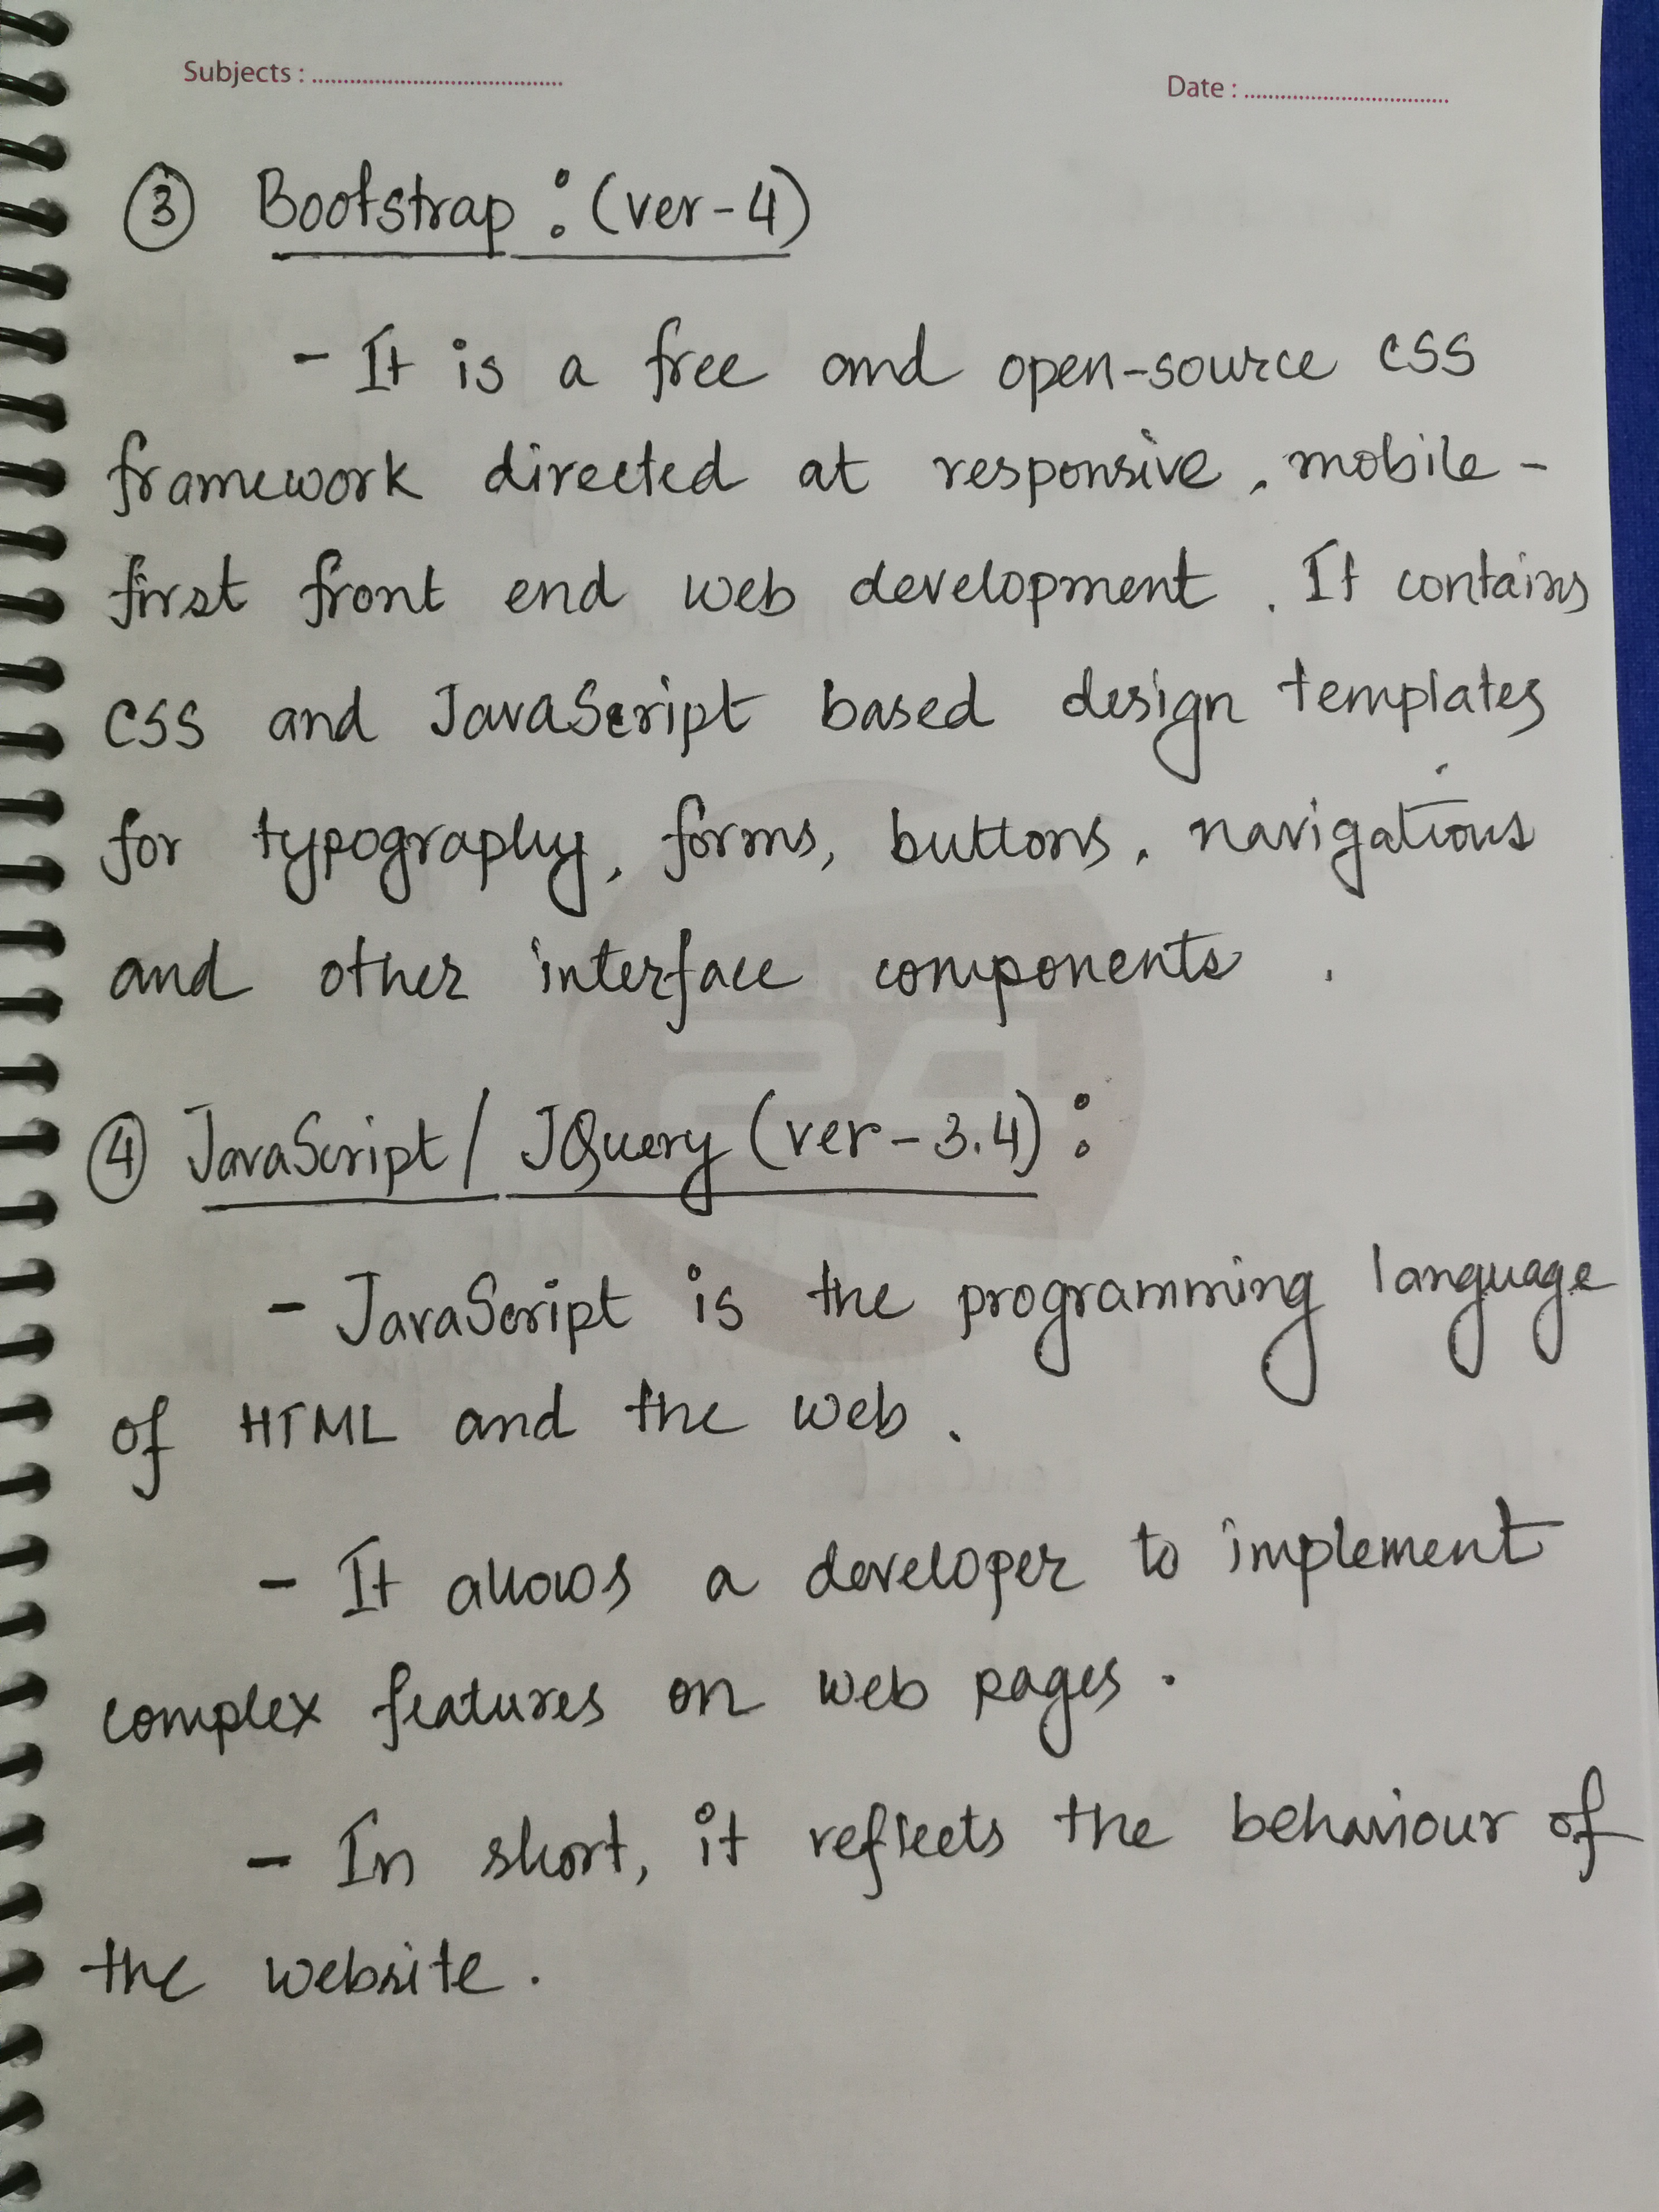 Subjects : ........................................
Date : .................................
③ Bootstrap : (ver-4)
- It is a free and open-source CSS
framework directed at responsive, mobile-
first front end web development. It contains
CSS and JavaScript based design templates
for typography, forms, buttons, navigations
and other interface components.
④ JavaScript / JQuery (ver-3.4) :
- JavaScript is the programming language
of HTML and the web.
- It allows a developer to implement
complex features on web pages.
- In short, it reflects the behaviour of
the website.